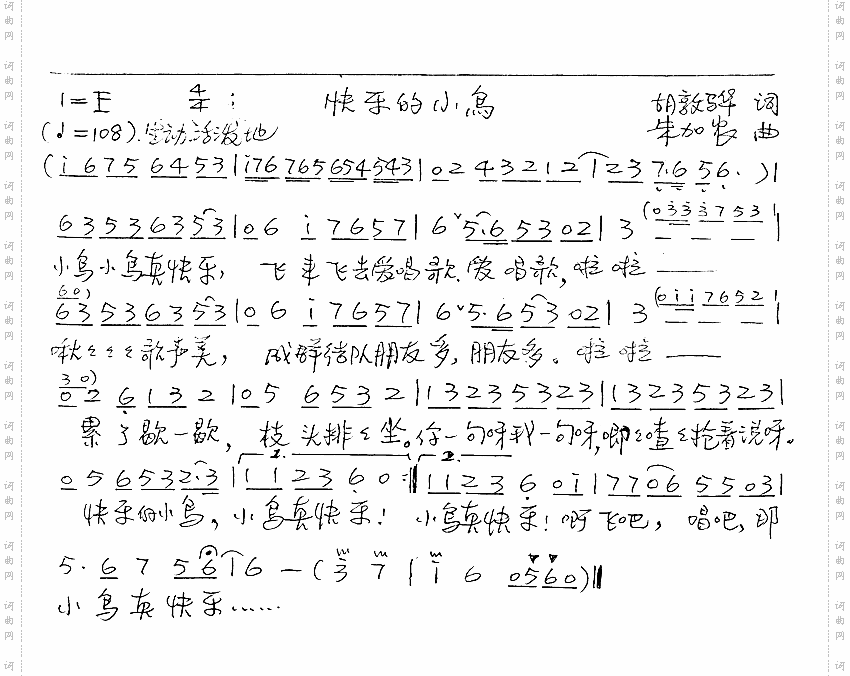 1=E 4/4 : 快乐的小鸟 胡敦骅 词
(♩=108).生动活泼地 朱加农 曲
(i 6 7 5 6 4 5 3 | i76 765 654543 | 02 4321 2 1 23 7·6 56· ) |
6 3 5 3 6 3 5 3 | 0 6 i 7 6 5 7 | 6 ˅5·6 5 3 0 2 | 3 (0 3 3 3 7 5 3 | — — — |
小鸟小鸟真快乐, 飞来飞去爱唱歌.爱唱歌,啦啦——
6 0)
6 3 5 3 6 3 5 3 | 0 6 i 7 6 5 7 | 6 ˅5·6 5 3 0 2 | 3 (0 i i 7 6 5 2 | — — — |
啾ミミミ歌声美, 成群结队朋友多,朋友多。啦啦——
3 0)
0 2 6 1 3 2 | 0 5 6 5 3 2 | 1 3 2 3 5 3 2 3 | 1 3 2 3 5 3 2 3 |
累了歇一歇, 枝头排ミ坐。你一句呀我一句呀,唧ミ喳ミ抢着说呀。
1. 2.
0 5 6 5 3 2·3 | 1 1 2 3 6 0 :‖ 1 1 2 3 6 0 i | 7 7 0 6 5 5 0 3 |
快乐的小鸟, 小鸟真快乐! 小鸟真快乐!啊飞吧, 唱吧,那
5· 6 7 5 6 i 6 — ( 3 7 | i 6 0 5 6 0 ) ‖
小鸟真快乐……
词曲网